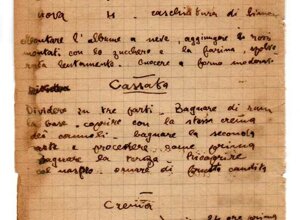 uova 4 - raschiatura di limone
Montare l'albume a neve, aggiungere i rossi
montati con lo zucchero e la farina, spolve
rata lentamente. Cuocere a forno moderato
Cassata
Dividere in tre parti. Bagnare di rum
base, coprire con la stessa crema
dei cannoli - bagnare la seconda
parte e procedere come prima
Bagnare la terza - Ricoprire
col naspro - ornare di frutta candita
Crema